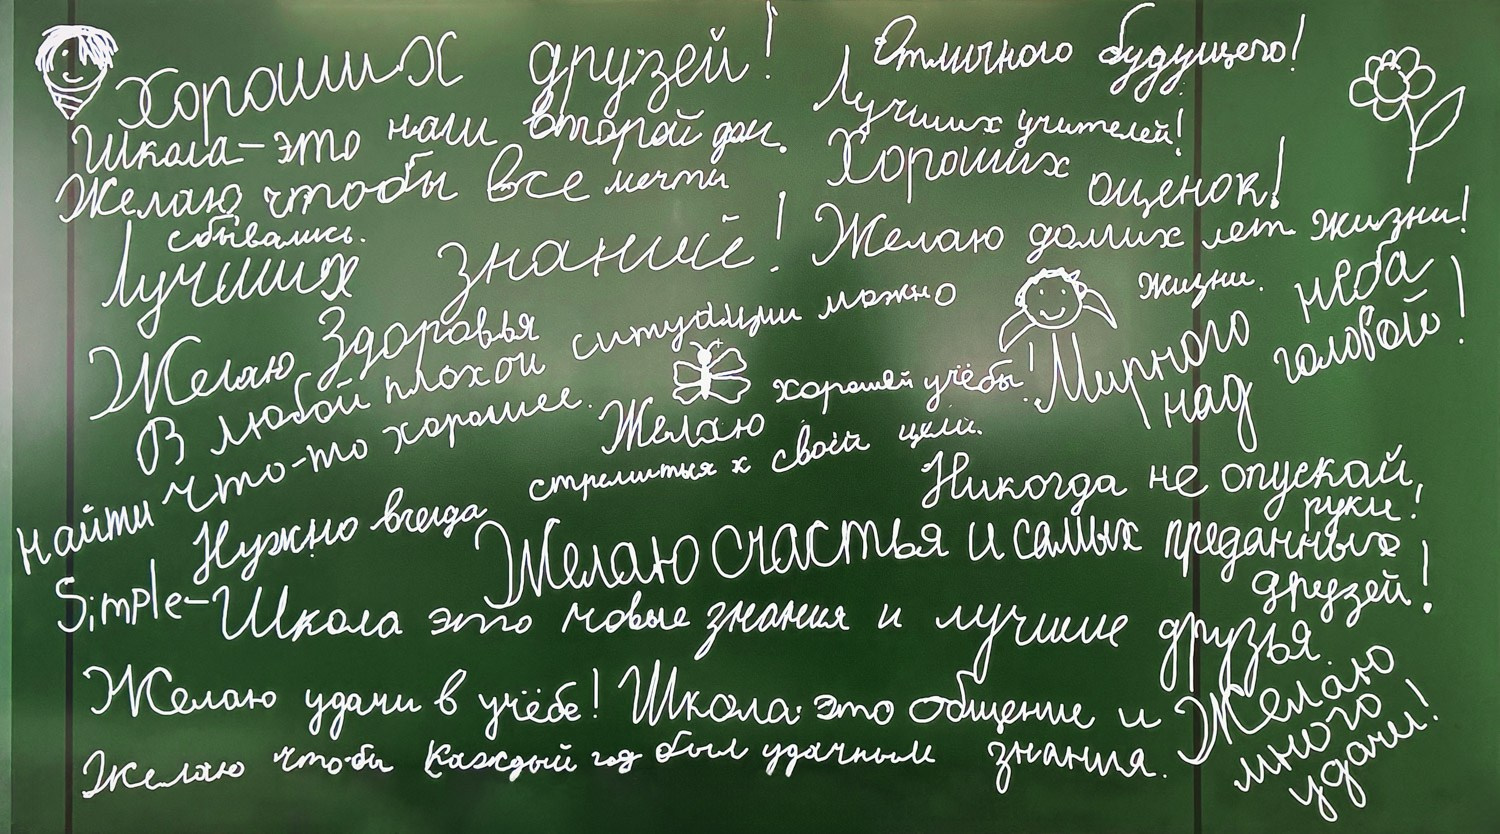 Хороших друзей!
Отличного будущего!
Школа-это наш второй дом.
Лучших учителей!
Желаю чтобы все мечты
сбывались.
Хороших оценок!
Лучших знаний!
Желаю долгих лет жизни!
жизни.
Желаю Здоровья
Мирного неба
над головой!
В любой плохой ситуации можно
найти что-то хорошее.
Желаю хорошей учёбы!
Нужно всегда стремиться к своей цели.
Никогда не опускай,
руки!
Желаю счастья и самых преданных
друзей!
Simple-Школа это новые знания и лучшие друзья.
Желаю удачи в учёбе!
Школа это общение и
знания.
Желаю
много
удачи!
Желаю чтобы каждый год был удачным